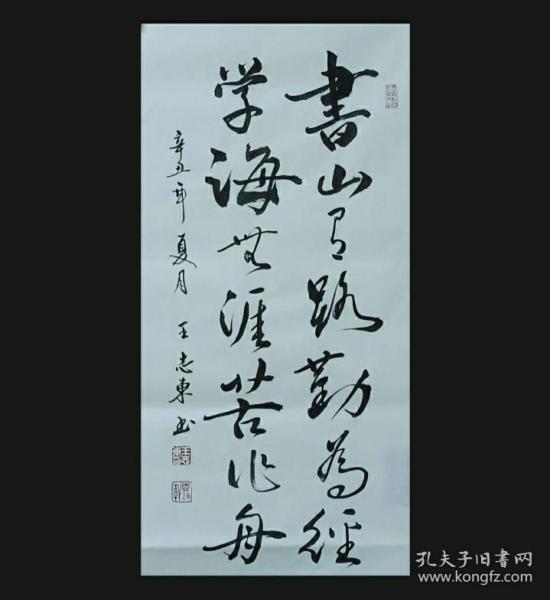 書山有路勤為經
学海無涯苦作舟
辛丑年夏月 王志東书
孔夫子旧书网
www.kongfz.com